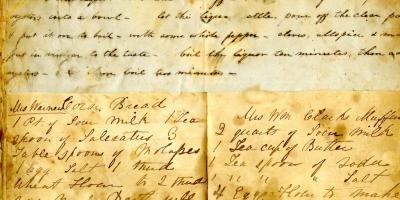 into a bowl - let the liquor settle, pour off the clear part
put it on to boil - with some white pepper - cloves, allspice & mace
put in vinegar to the taste - boil the liquor ten minutes, then a
boil two minutes -
Golden Bread
1 Pt of Sour Milk 1 Tea
spoon of Saleratus 3
Table spoons of Molasses
1 Egg Salt
Wheat Flour or 2 thirds
Mrs Wm Clarks Muffins
2 quarts of Sour Milk
1 Tea cup of Butter
1 Tea spoon of Soda
1 " " " Salt
4 Eggs Flour to make